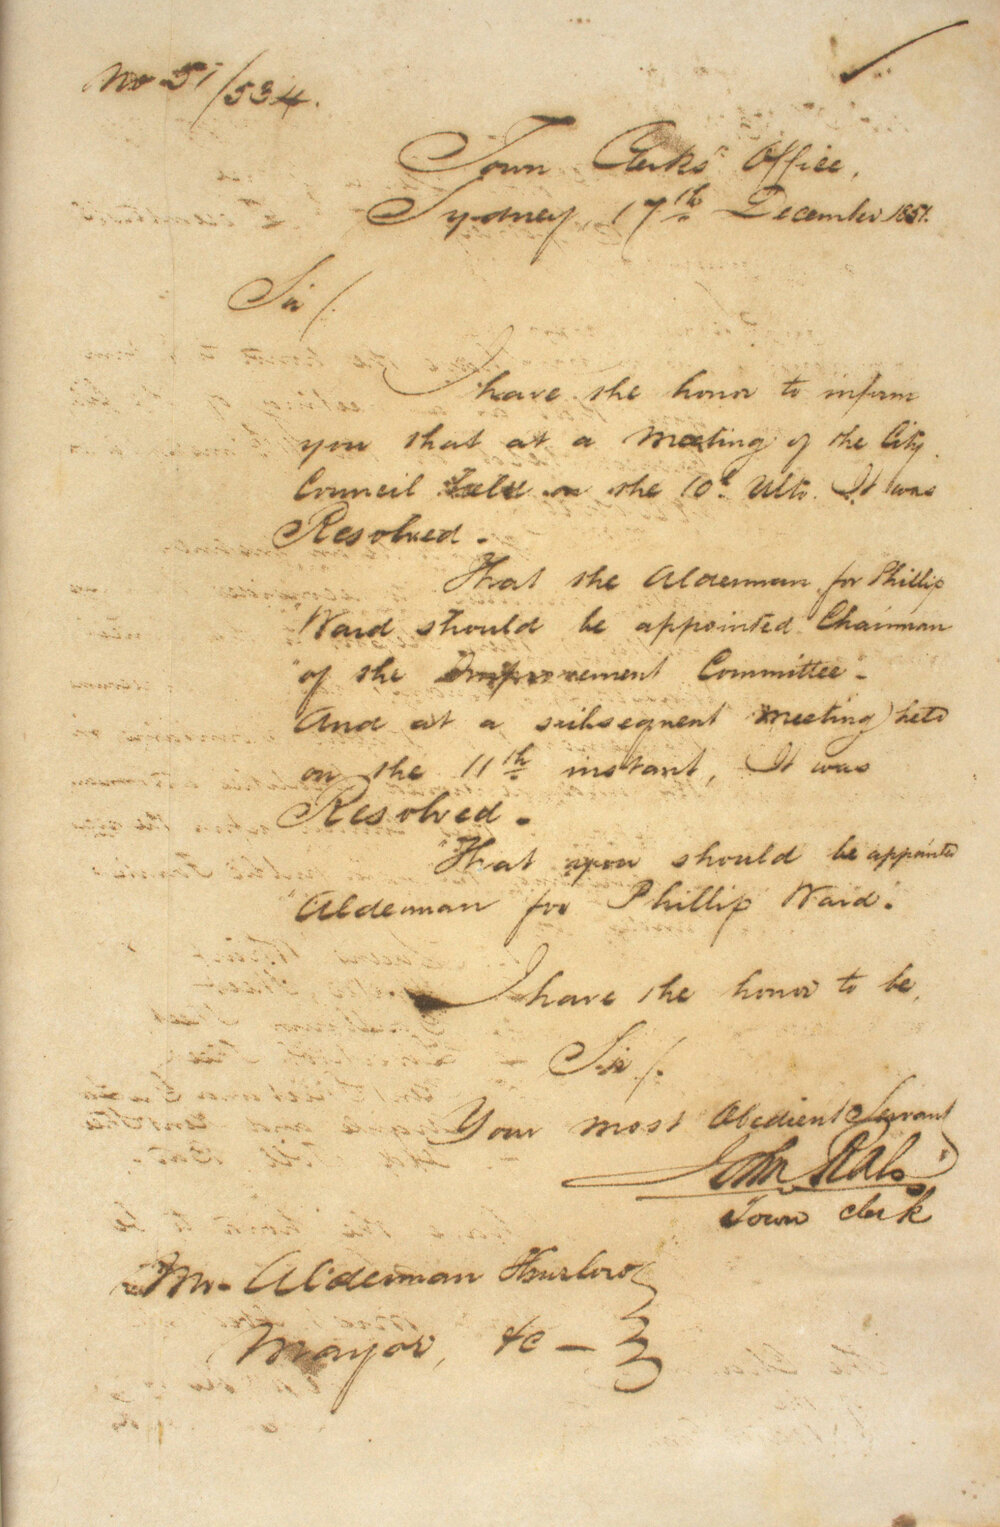 No 51/534.
Town Clerks' Office,
Sydney 17th December 1851.
Sir/.
I have the honor to inform
you that at a Meeting of the City
Council held on the 10th Ulto. It was
Resolved -
That the Alderman for Phillip
"Ward should be appointed Chairman
"of the Improvement Committee" -
And at a subsequent meeting held
on the 11th instant, It was
Resolved -
"That you should be appointed
"Alderman for Phillip Ward".
I have the honor to be,
Sir/.
Your most Obedient Servant
John
Town Clerk
Mr Alderman Thurlow
Mayor, &c -